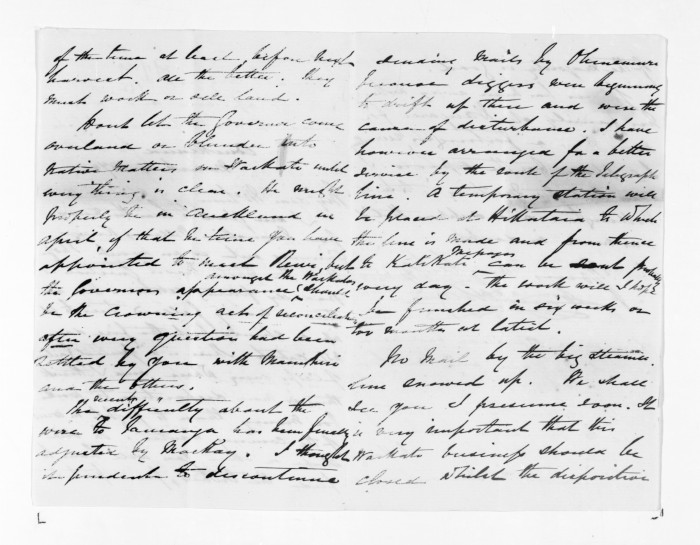 of the time at least before next
harvest. All the better. They
must work or sell land.
Dont let the Governor come
overland or blunder into
Native Matters in Waikato until
everything is clear. He might
properly be in Auckland in
April, of that the time you have
appointed to meet Rewi, but
the Governors appearance amongst the Waikatos should
be the crowning act of reconciliation
after every question had been
settled by you with Manuhiri
and the others.
The recent difficulty about the
wire to Tauranga has been finally
adjusted by Mackay. I thought
it prudent to discontinue
sending mails by Ohinemuri
because diggers were beginning
to drift up there and were the
cause of disturbance. I have
however arranged for a better
service by the route of the Telegraph
line. A temporary station will
be placed at Hikutaia to which
the line is made and from thence
to Katikati messages can be sent probably
every day. The work will I hope
be finished in six weeks or
two months at latest.
No Mail by the big steamer.
Line snowed up. We shall
see you, I presume soon. It
is very important that this
Waikato business should be
closed whilst the disposition